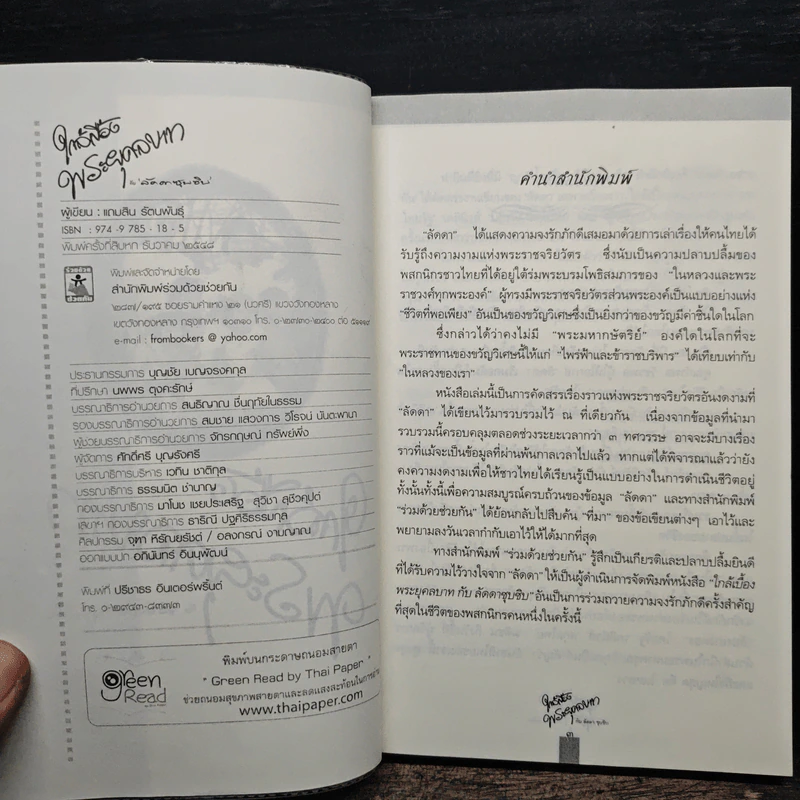 ใกล้เบื้อง
พระยุคลบาท
กับ "ลัดดาซุบซิบ"
ผู้เขียน : แถมสิน รัตนพันธุ์
ISBN : 974 -9 785 - 18 - 5
พิมพ์ครั้งที่สิบหก ธันวาคม ๒๕๔๘
พิมพ์และจัดจำหน่ายโดย
สำนักพิมพ์ร่วมด้วยช่วยกัน
๒๘๗/๑๙๕ ซอยรามคำแหง ๒๑ (นวศรี) แขวงวังทองหลาง
เขตวังทองหลาง กรุงเทพฯ ๑๐๓๑๐ โทร.
e-mail : frombookers @ yahoo.com
ประธานกรรมการ บุญชัย เบญจรงคกุล
ที่ปรึกษา นพพร ตุงคะรักษ์
บรรณาธิการอำนวยการ สนธิญาณ ชื่นฤทัยในธรรม
รองบรรณาธิการอำนวยการ สมชาย แสวงการ วิโรจน์ นันตะพานา
ผู้ช่วยบรรณาธิการอำนวยการ จักรกฤษณ์ ทรัพย์พึ่ง
ผู้จัดการ ศักดิ์ศรี บุญรังศรี
บรรณาธิการบริหาร เวทิน ชาติกุล
บรรณาธิการ ธรรมนิต ชำนาญ
กองบรรณาธิการ มาโนช เชยประเสริฐ สุวิชา สุชีวคุปต์
เลขาฯ กองบรรณาธิการ ธาริณี ปฐศิริธรรมกุล
ศิลปกรรม จุฑา หิรัณยรัชต์ / อลงกรณ์ งามญาณ
ออกแบบปก อภินันทร์ อินนุพัฒน์
พิมพ์ที่ ปรีชาธร อินเตอร์พริ้นต์
โทร. ๐-๒๙๔๓-๘๓๗๓
green
Read
พิมพ์บนกระดาษถนอมสายตา
" Green Read by Thai Paper "
ช่วยถนอมสุขภาพสายตาและลดแสงสะท้อนในการอ่าน
www.thaipaper.com
คำนำสำนักพิมพ์
"ลัดดา" ได้แสดงความจงรักภักดีเสมอมาด้วยการเล่าเรื่องให้คนไทยได้
รับรู้ถึงความงามแห่งพระราชจริยวัตร ซึ่งนับเป็นความปลาบปลื้มของ
พสกนิกรชาวไทยที่ได้อยู่ใต้ร่มพระบรมโพธิสมภารของ "ในหลวงและพระ
ราชวงศ์ทุกพระองค์" ผู้ทรงมีพระราชจริยวัตรส่วนพระองค์เป็นแบบอย่างแห่ง
"ชีวิตที่พอเพียง" อันเป็นของขวัญวิเศษซึ่งเป็นยิ่งกว่าของขวัญมีค่าชิ้นใดในโลก
ซึ่งกล่าวได้ว่าคงไม่มี "พระมหากษัตริย์" องค์ใดในโลกที่จะ
พระราชทานของขวัญวิเศษนี้ให้แก่ "ไพร่ฟ้าและข้าราชบริพาร" ได้เทียบเท่ากับ
"ในหลวงของเรา"
หนังสือเล่มนี้เป็นการคัดสรรเรื่องราวแห่งพระราชจริยวัตรอันงดงามที่
"ลัดดา" ได้เขียนไว้มารวบรวมไว้ ณ ที่เดียวกัน เนื่องจากข้อมูลที่นำมา
รวบรวมนี้ครอบคลุมตลอดช่วงระยะเวลากว่า ๓ ทศวรรษ อาจจะมีบางเรื่อง
ราวที่แม้จะเป็นข้อมูลที่ผ่านพ้นกาลเวลาไปแล้ว หากแต่ได้พิจารณาแล้วว่ายัง
คงความงดงามเพื่อให้ชาวไทยได้เรียนรู้เป็นแบบอย่างในการดำเนินชีวิตอยู่
ทั้งนั้นทั้งนี้เพื่อความสมบูรณ์ครบถ้วนของข้อมูล "ลัดดา" และทางสำนักพิมพ์
"ร่วมด้วยช่วยกัน" ได้ย้อนกลับไปสืบค้น "ที่มา" ของข้อเขียนต่างๆ เอาไว้และ
พยายามลงวันเวลากำกับเอาไว้ให้ได้มากที่สุด
ทางสำนักพิมพ์ "ร่วมด้วยช่วยกัน" รู้สึกเป็นเกียรติและปลาบปลื้มยินดี
ที่ได้รับความไว้วางใจจาก "ลัดดา" ให้เป็นผู้ดำเนินการจัดพิมพ์หนังสือ "ใกล้เบื้อง
พระยุคลบาท กับ ลัดดาซุบซิบ" อันเป็นการร่วมถวายความจงรักภักดีครั้งสำคัญ
ที่สุดในชีวิตของพสกนิกรคนหนึ่งในครั้งนี้
ใกล้เบื้อง
พระยุคลบาท
กับ ลัดดา ซุบซิบ
๓